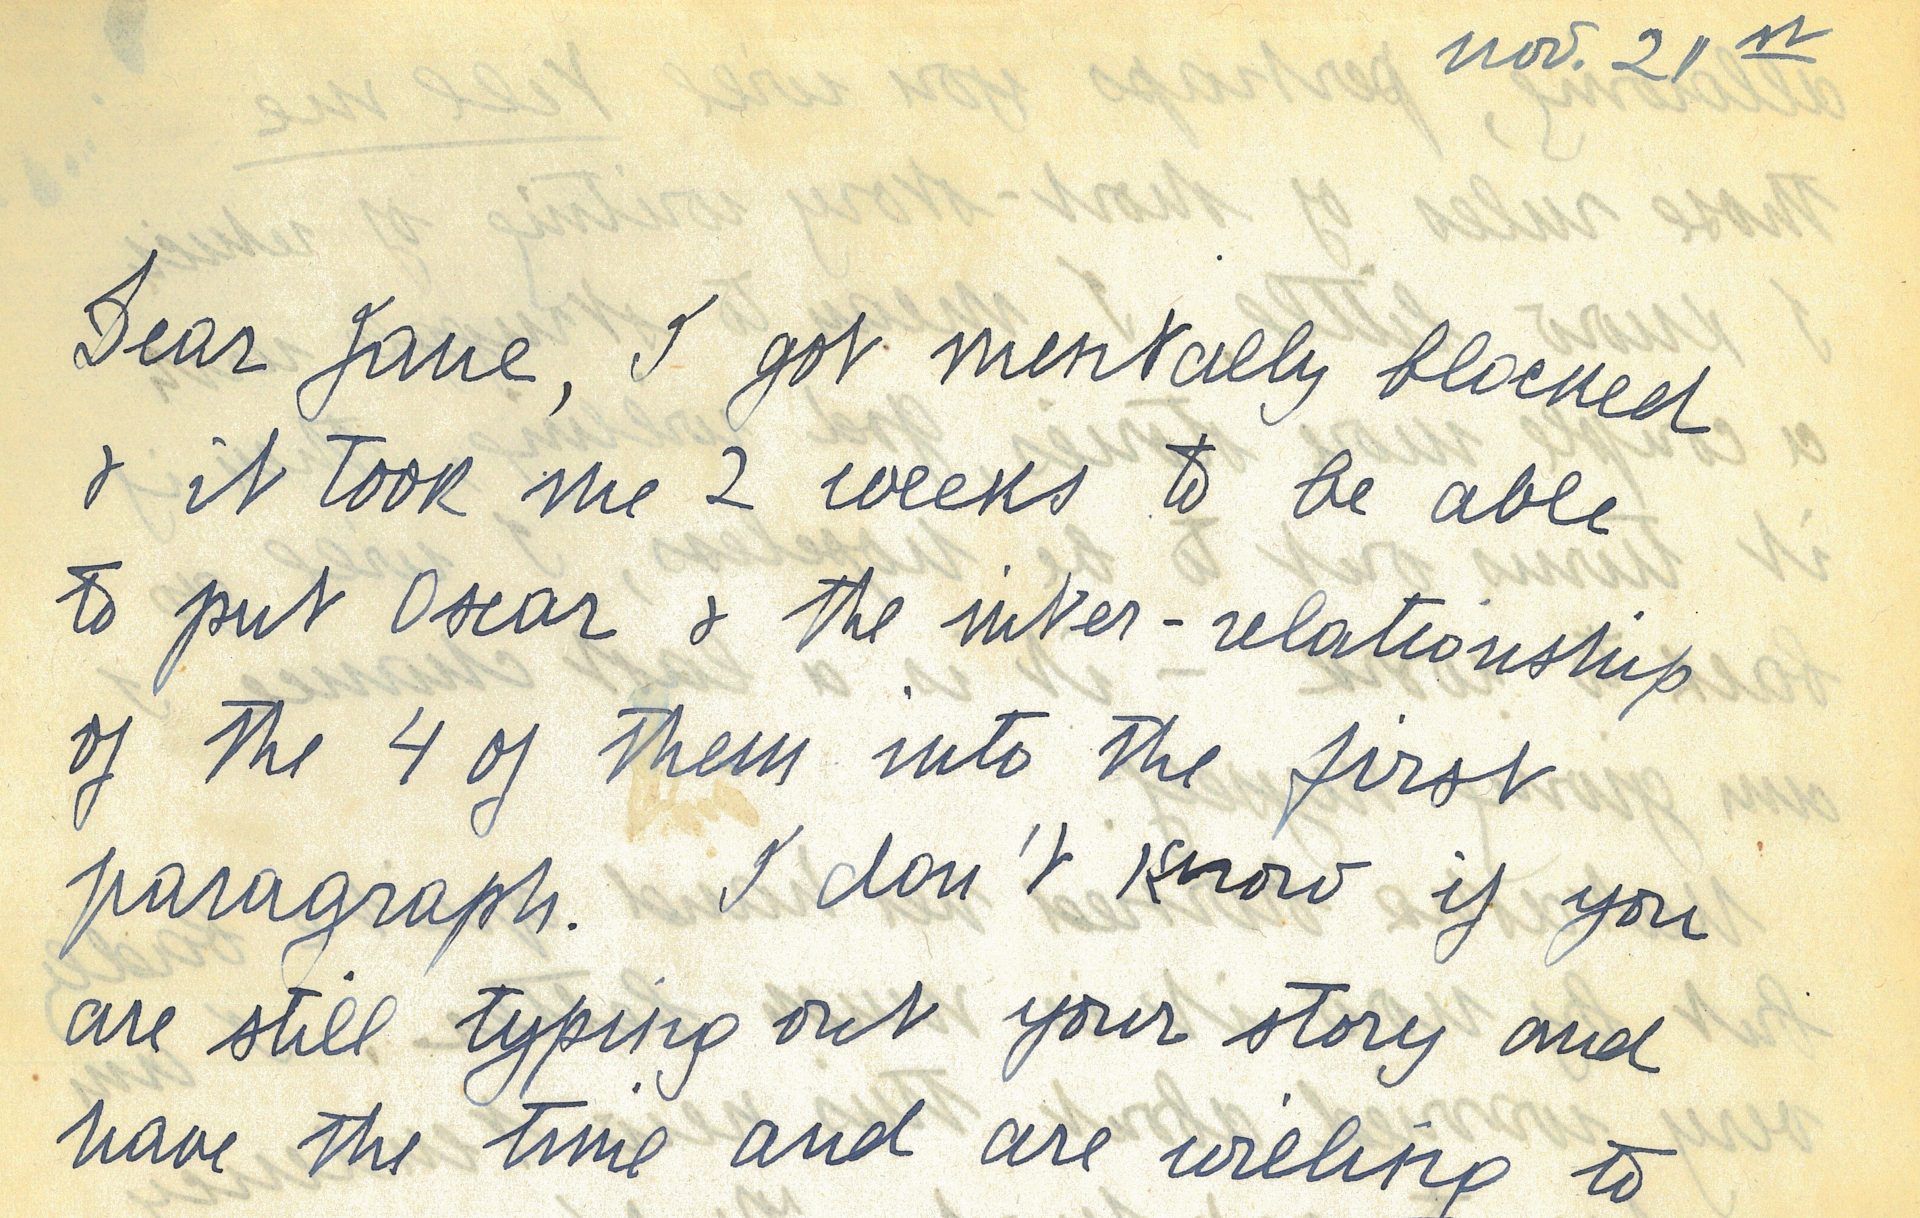 Nov. 21st
Dear Jane, I got mentally blocked
& it took me 2 weeks to be able
to put Oscar & the inter-relationship
of the 4 of them into the first
paragraph. I don't know if you
are still typing out your story and
have the time and are willing to